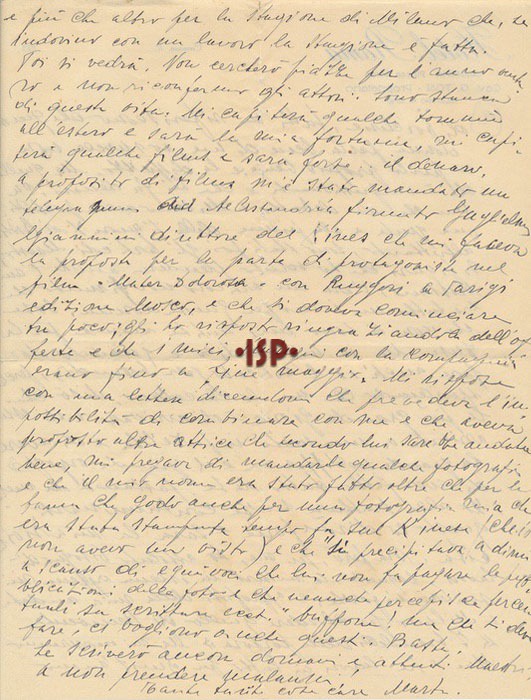 e più che altro per la stagione di Milano che, se
indovino con un lavoro la stagione è fatta.
Poi si vedrà. Non cercherò piazze per l'anno
ro e non riconfermo gli attori. Sono stanca
di questa vita. Mi capiterà qualche
all'estero e sarà la mia fortuna, mi capi-
terà qualche films e sarà forse il denaro.
A proposito di films m'è stato mandato un
telegramma ad Alessandria firmato Guglielmo
Giannini direttore del Kines che mi faceva
la proposta per la parte di protagonista nel
film "Mater Dolorosa" con Ruggeri a Parigi
edizione Mosco, e che si doveva cominciare
tra poco; gli ho risposto ringraziandolo dell'of-
ferte e che i miei con la Compagnia
erano fino a fine maggio. Mi rispose
con una lettera dicendomi che precideva l'im-
possibilità di combinare con me e che aveva
proposto altre attrice che secondo lui sarebbe andata
bene, mi pregava di mandarle qualche fotografia
e che il mio nome era stato fatto oltre che per la
fama che godo anche per una fotografia mia che
era stata stampata tempo fa sul Kines (che io
non avevo mai visto) e che "si precipitava a dirmi
a scanso di equivoci che lui non fa pagare le pub-
blicazioni delle foto e che neanche percepisce percen-
tuali su scritture ecct." Buffone! ma che si deve
fare, ci vogliono anche questi. Basta,
te scriverò ancora domani e attenti
a non prendere
Tante tante cose care Marta
•ISP•